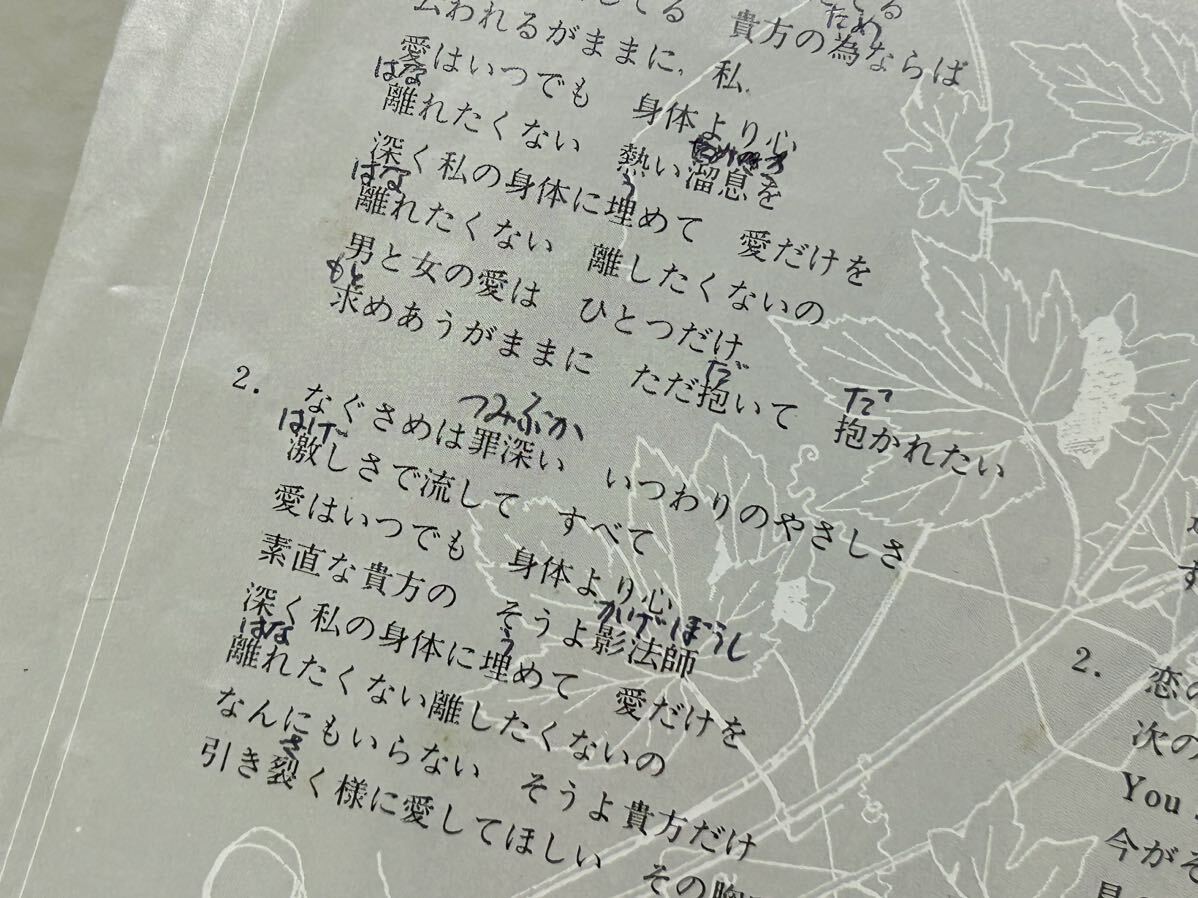 ため
貴方の為ならば
われるがままに、私
愛はいつでも 身体より心
はな
離れたくない 熱い溜息を
う
深く私の身体に埋めて 愛だけを
はな
離れたくない 離したくないの
男と女の愛は ひとつだけ
もと だ だ
求めあうがままに ただ抱いて 抱かれたい
つみぶか
2. なぐさめは罪深い いつわりのやさしさ
はげ
激しさで流して すべて
愛はいつでも 身体より心
かげぼうし
素直な貴方の そうよ影法師
う
深く私の身体に埋めて 愛だけを
はな
離れたくない離したくないの
なんにもいらない そうよ貴方だけ
さ
引き裂く様に愛してほしい その胸
す
2. 恋の
次の
You
今がそ